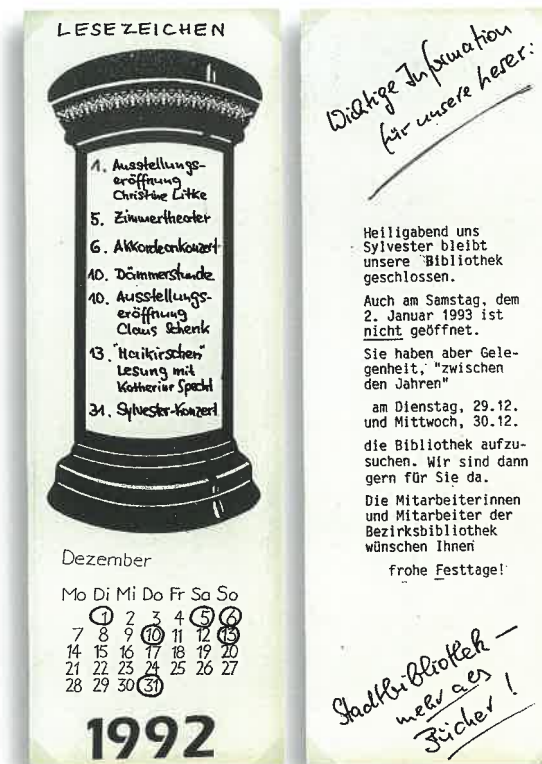 LESEZEICHEN
1. Ausstellungs-
eröffnung
Christine Litke
5. Zimmertheater
6. Akkordeonkonzert
10. Dämmerstunde
10. Ausstellungs-
eröffnung
Claus Schenk
13. "Maikirschen"
Lesung mit
Katherine Specht
31. Sylvester-Konzert
Dezember
Mo Di Mi Do Fr Sa So
1 2 3 4 5 6
7 8 9 10 11 12 13
14 15 16 17 18 19 20
21 22 23 24 25 26 27
28 29 30 31
1992
Wichtige Information
für unsere Leser:
Heiligabend uns
Sylvester bleibt
unsere Bibliothek
geschlossen.
Auch am Samstag, dem
2. Januar 1993 ist
nicht geöffnet.
Sie haben aber Gele-
genheit, "zwischen
den Jahren"
am Dienstag, 29.12.
und Mittwoch, 30.12.
die Bibliothek aufzu-
suchen. Wir sind dann
gern für Sie da.
Die Mitarbeiterinnen
und Mitarbeiter der
Bezirksbibliothek
wünschen Ihnen
frohe Festtage!
Stadtbibliothek —
mehr als
Bücher!